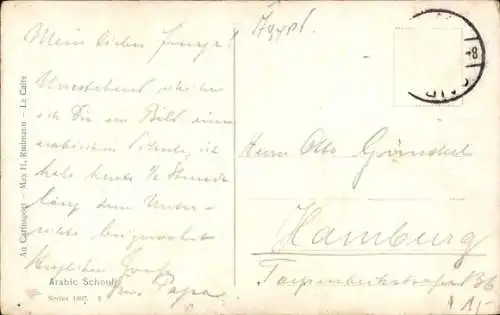 Mein lieber Junge!
Umstehend schicke
ich Dir ein Bild einer
arabischen Schule, ich
habe heute ½ Stunde
lang dem Unter-
richte beigewohnt
Herzlichen Gruß
Dein Papa
Egypt.
Herrn Otto
Hamburg
36
Au Cartosport — Max H. Rudmann — Le Caire
Arabic School
Series 1607.